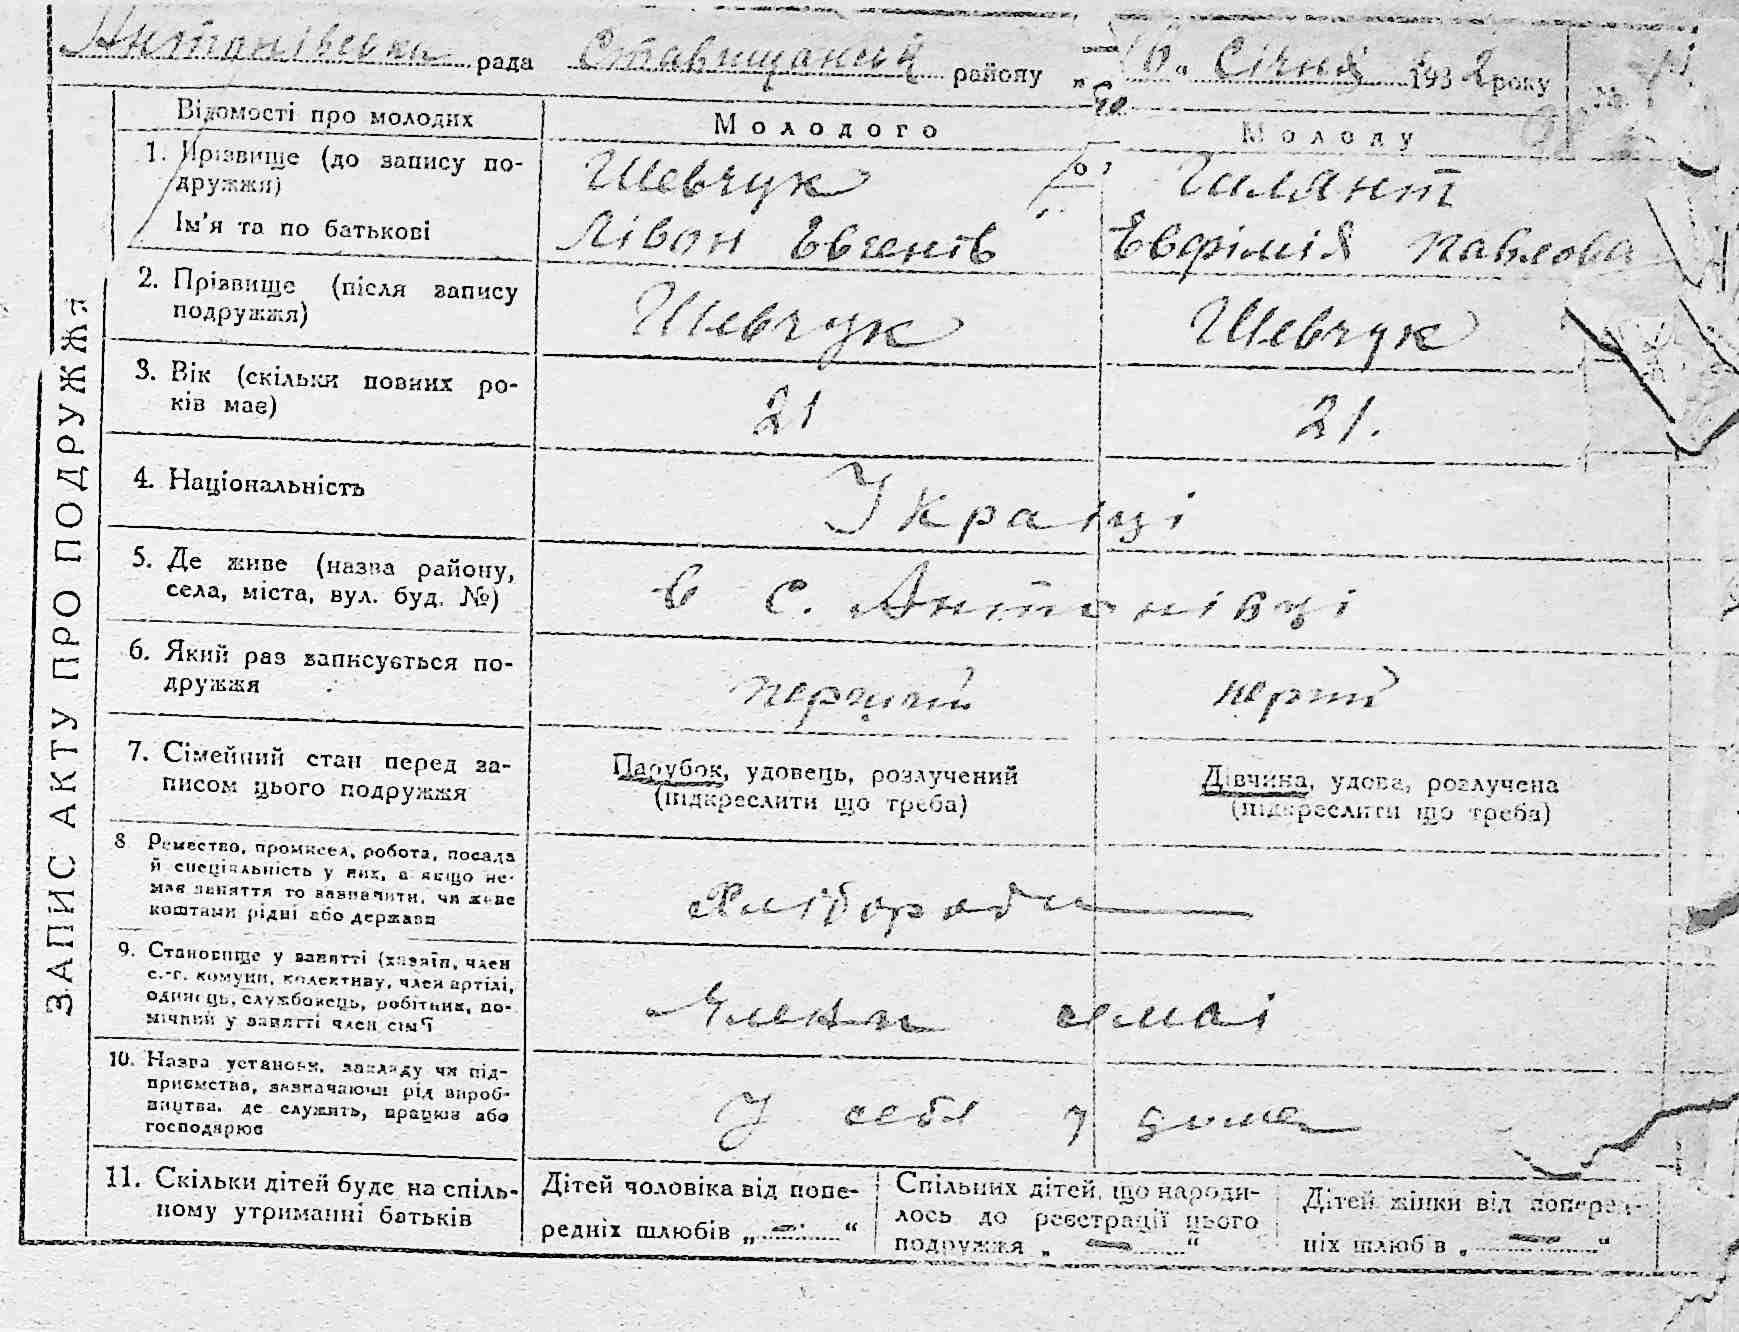 Антонівська рада Ставищанський району „ 10 “ Січня 1932 року №
ЗАПИС АКТУ ПРО ПОДРУЖЖЯ
Відомості про молодих Молодого Молоду
1. Прізвище (до запису по-
дружжя) Шевчук
Ім'я та по батькові Лівон Евгенів Евфімія Павлова
2. Прізвище (після запису
подружжя) Шевчук Шевчук
3. Вік (скільки повних ро-
ків має) 21 21.
4. Національність Україці
5. Де живе (назва району,
села, міста, вул. буд. №) в с. Антонівці
6. Який раз записується по-
дружжя перший перший
7. Сімейний стан перед за-
писом цього подружжя
Парубок, удовець, розлучений
(підкреслити що треба)
Дівчина, удова, розлучена
(підкреслити що треба)
8 Ремество, промисел, робота, посада
й спеціяльність у них, а якщо не-
має заняття то зазначити, чи живе
коштами рідні або держави
Хлібороби
9. Становище у занятті (хазяїн, член
с.-г. комуни, колективу, член артілі,
одинець, службовець, робітник, по-
мічний у занятті член сім'ї
Члени семьі
10. Назва установи, закладу чи під-
приємства, зазначаючи рід вироб-
ництва, де служить, працює або
господарює
У себя у доме
11. Скільки дітей буде на спіль-
ному утриманні батьків
Дітей чоловіка від попе-
редніх шлюбів „ — “
Спільних дітей, що народи-
лось до реєстрації цього
подружжя „ — “
Дітей жінки від поперед-
ніх шлюбів „ — “